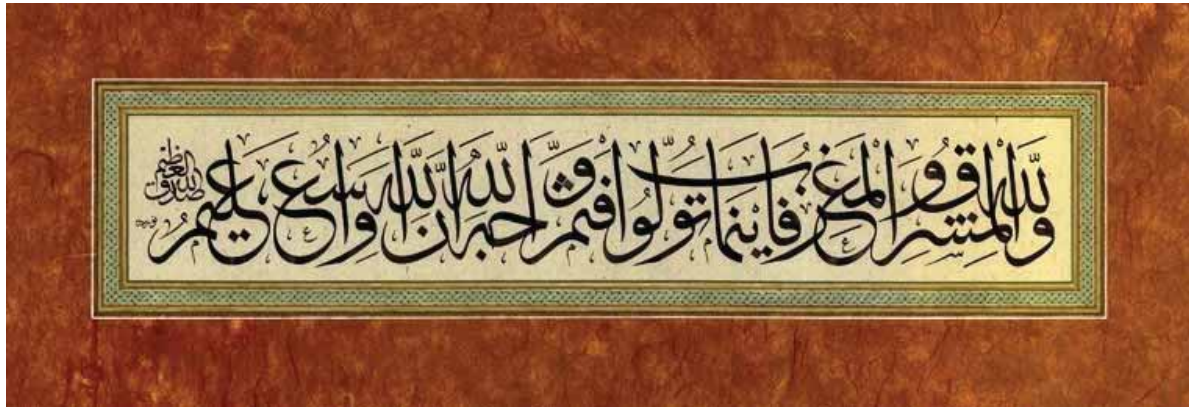 ولله المشرق والمغرب فأينما تولوا فثم وجه الله إن الله واسع عليم
صدق الله العظيم